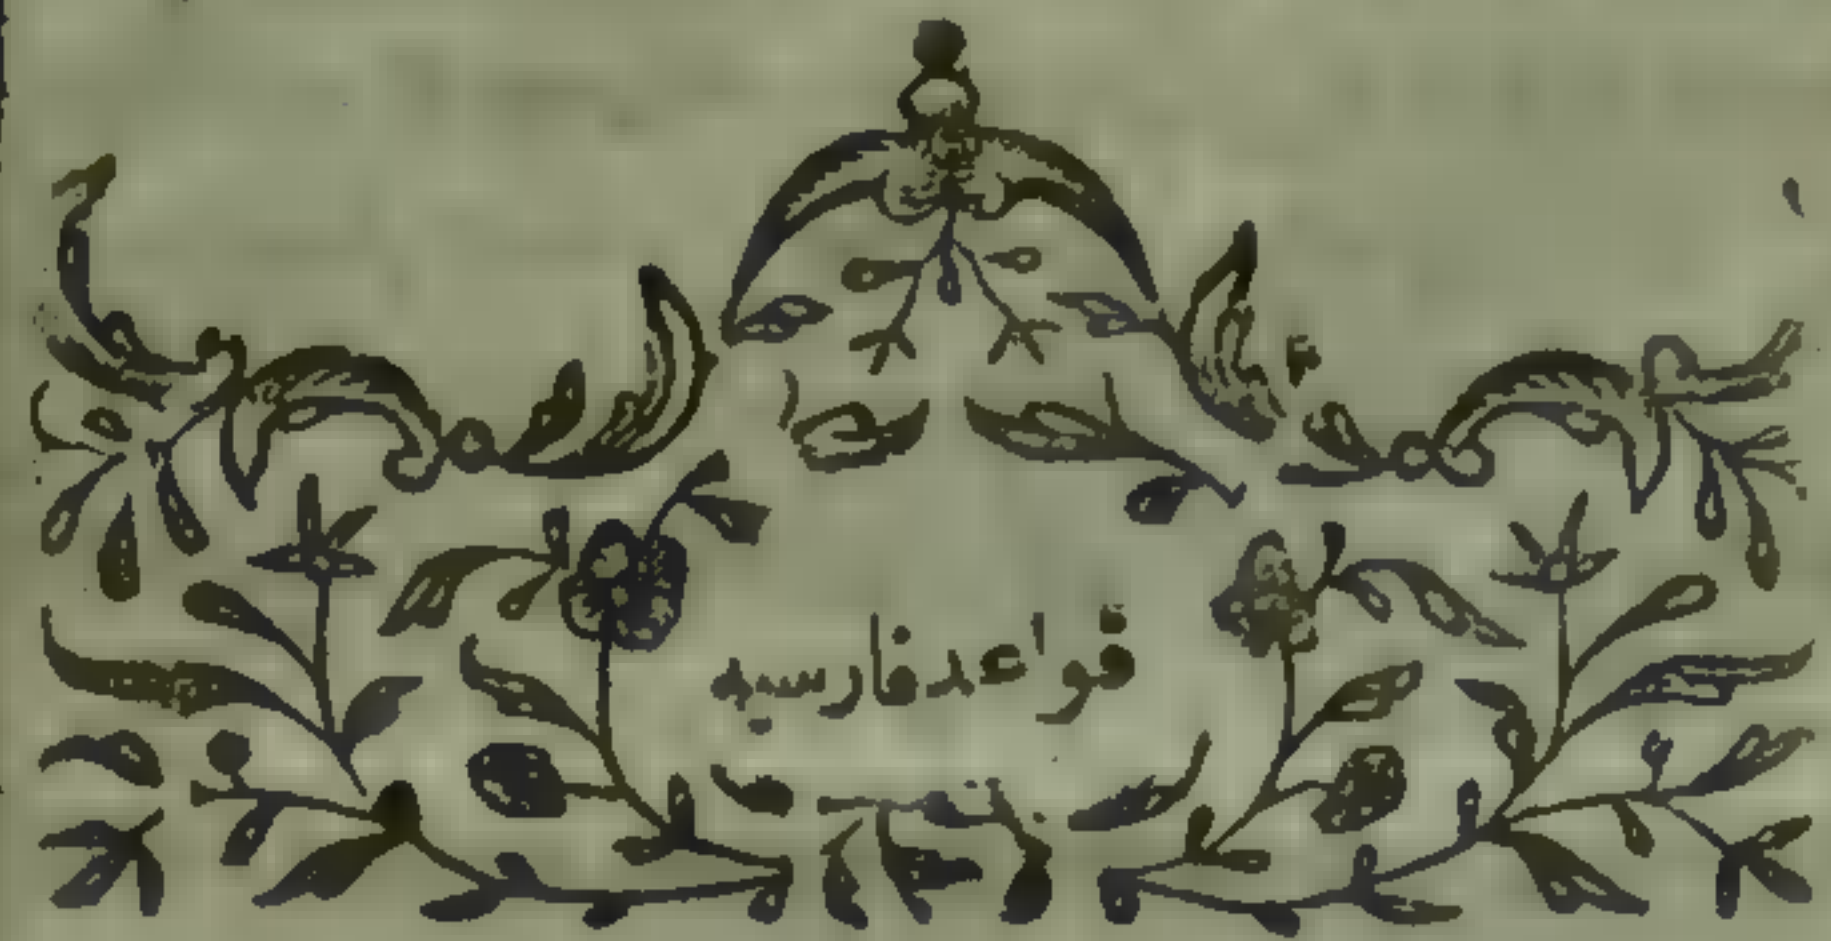 قواعد فارسيه